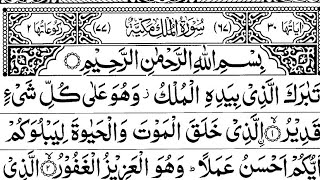 اٰیَاتُهَا ٣٠ (٦٧) سُوْرَةُ الْمُلْكِ مَكِّیَّةٌ (٧٧) رُكُوْعَاتُهَا ٢
بِسْمِ اللّٰهِ الرَّحْمٰنِ الرَّحِیْمِ
تَبٰرَكَ الَّذِیْ بِیَدِهِ الْمُلْكُ ز وَهُوَ عَلٰی كُلِّ شَیْءٍ
قَدِیْرُ ۙ﴿١﴾ اِۨلَّذِیْ خَلَقَ الْمَوْتَ وَالْحَیٰوةَ لِیَبْلُوَكُمْ
اَیُّكُمْ اَحْسَنُ عَمَلًا ؕ وَهُوَ الْعَزِیْزُ الْغَفُوْرُ ۙ﴿٢﴾ الَّذِیْ